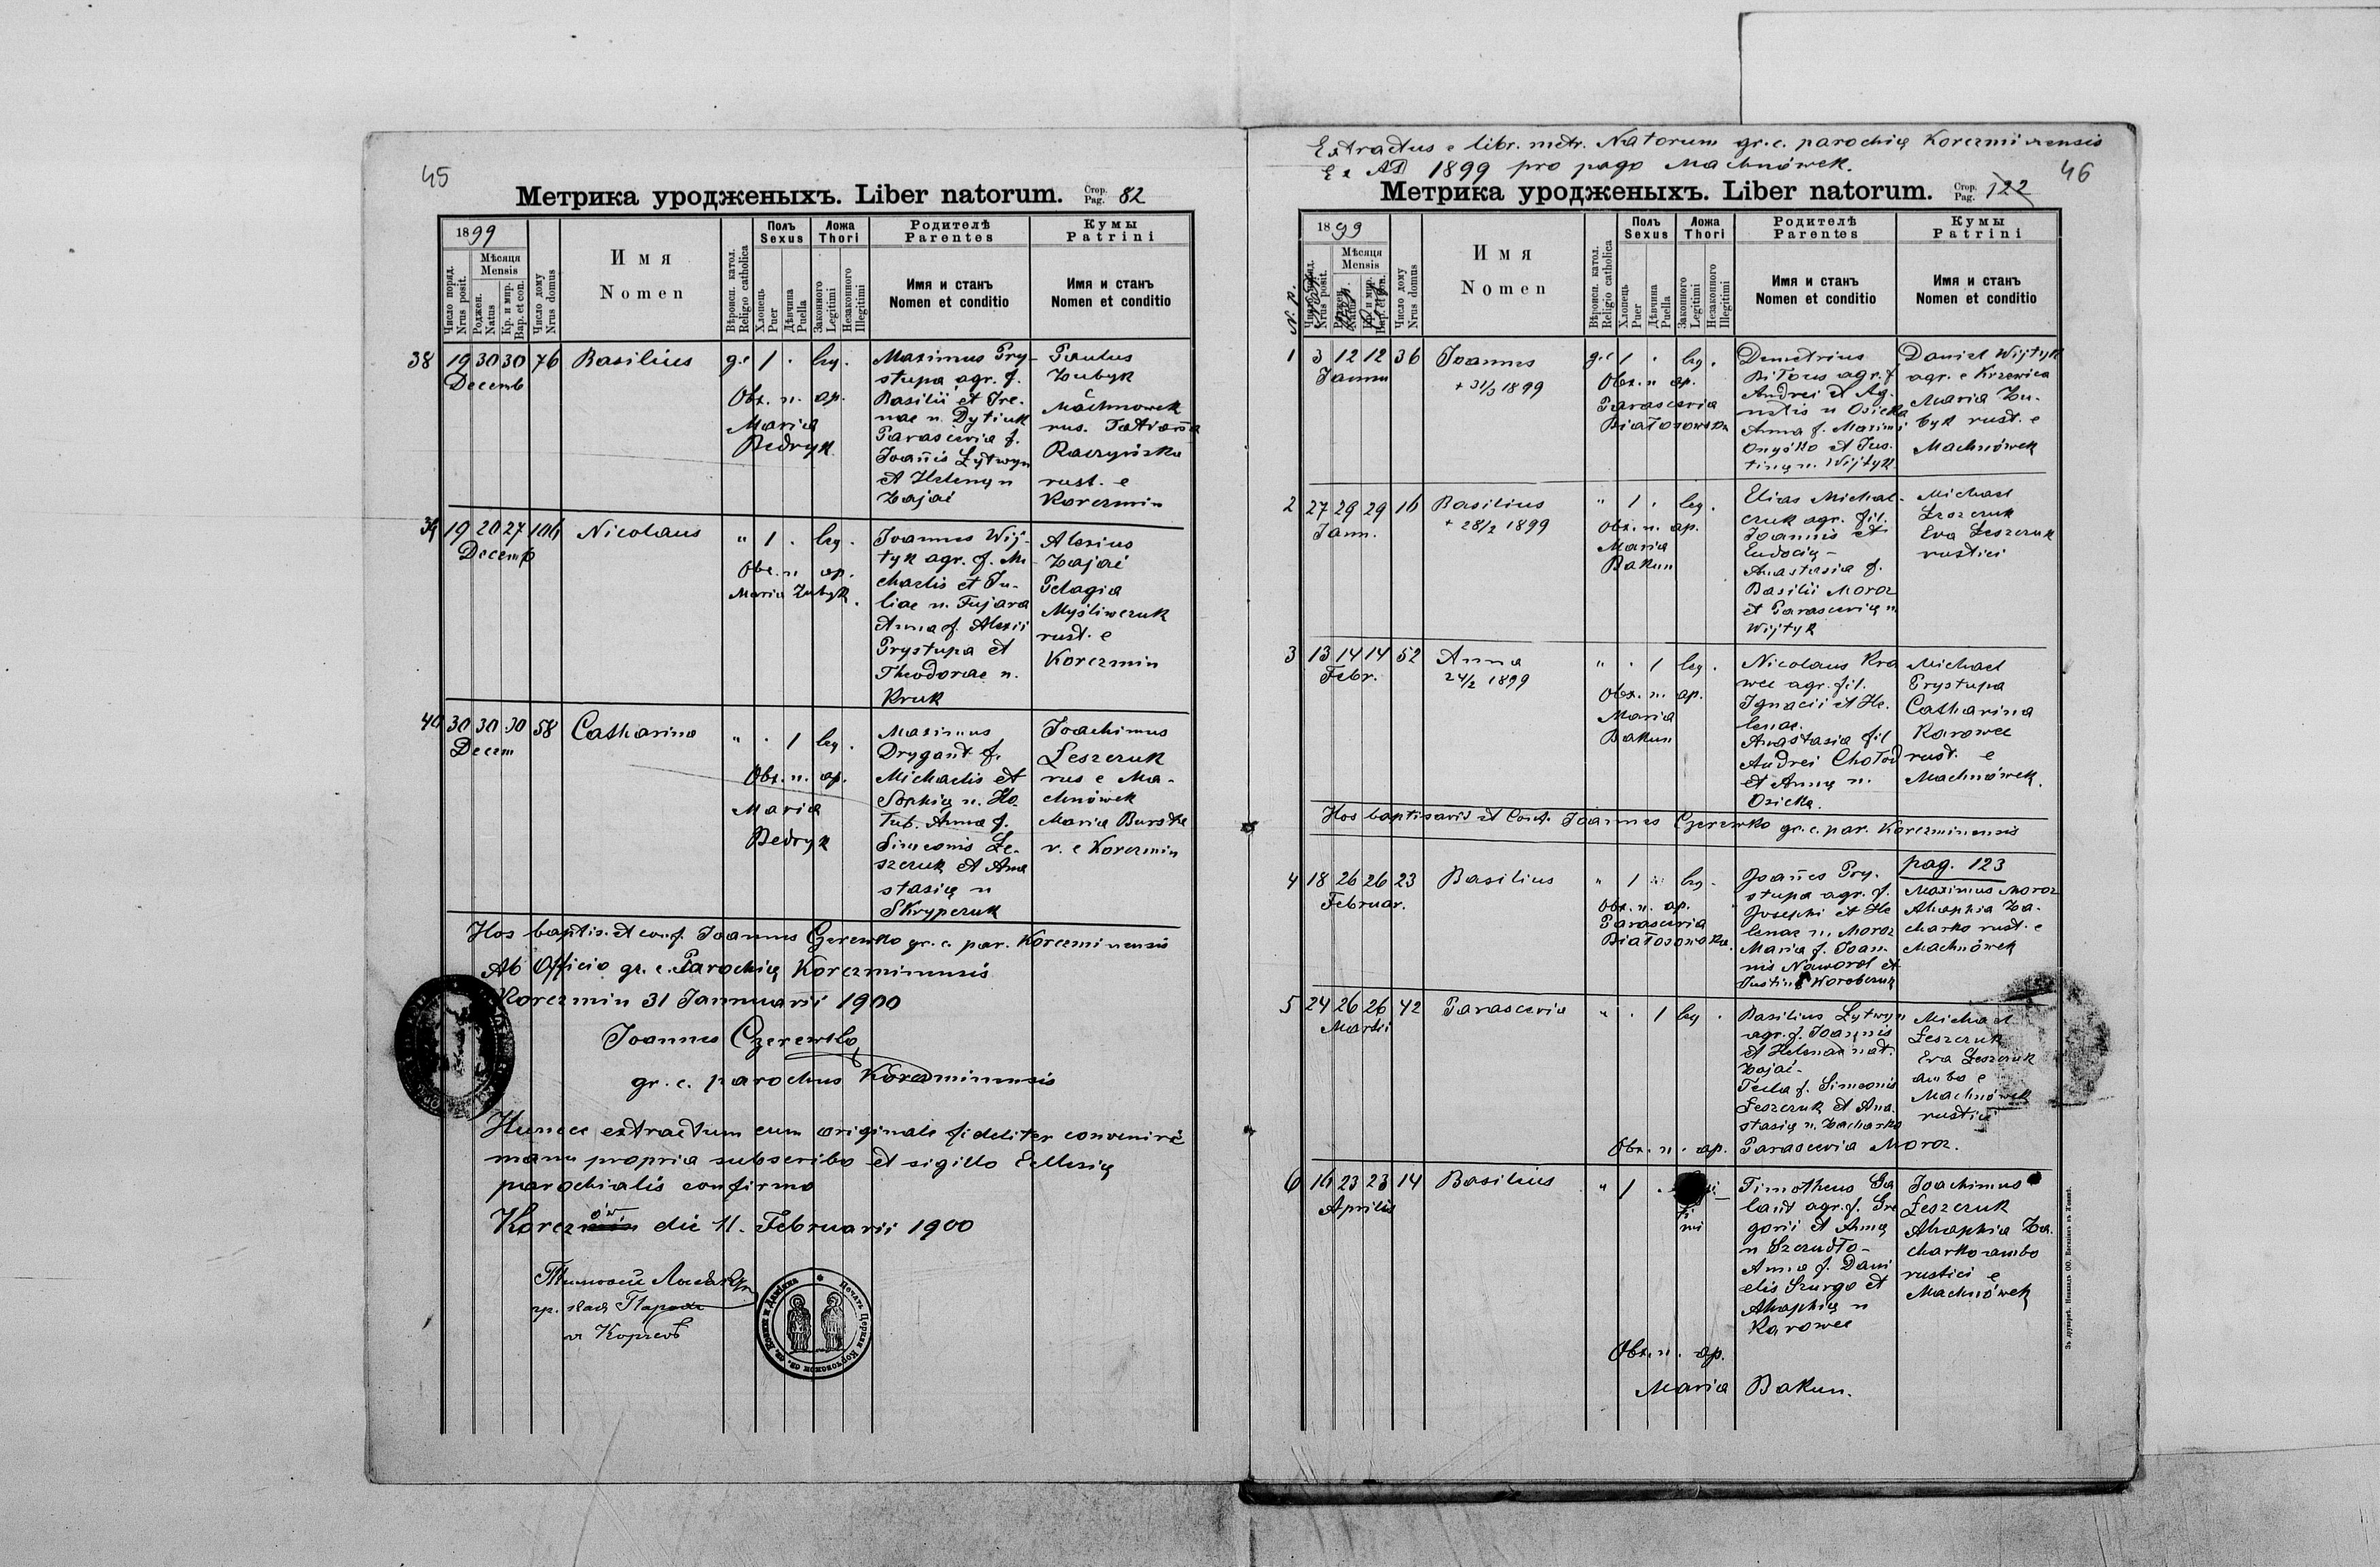 45
Метрика уродженыхъ. Liber natorum. Стор. Pag. 82
1899
Число поряд. Nrus posit.
Мѣсяця Mensis
Роджен. Natus
Кр. и мир. Bap. et con.
Число дому Nrus domus
Имя Nomen
Вѣроисп. катол. Religio catholica
Полъ Sexus
Хлопець Puer
Дѣвчина Puella
Ложа Thori
Законного Legitimi
Незаконного Illegitimi
Родителѣ Parentes
Имя и станъ Nomen et conditio
Кумы Patrini
Имя и станъ Nomen et conditio
38 19 30 30 76 Basilius g.c 1 . leg.
Decemb
Obx. n. ap.
Maria
Bedryk
Maximus Pry-
stupa agr. f.
Basilii et Ire-
nae n. Dytiuk
Parascevia f.
Joannis Lytwyn
et Helenę n
Zajać
Paulus
Zubyk
Machnowek
rus. Tatianna
Raczyńska
rust. e
Korczmin
39 19 20 27 106 Nicolaus " 1 . leg.
Decemb
Obx. n. ap.
Maria Zubyk.
Joannes Wij-
tyk agr. f. Mi-
chaelis et Ju-
liae n. Fujara
Anna f. Alexii
Prystupa et
Theodorae n.
Kruk
Alexius
Zajać
Pelagia
Myśliwczuk
rust. e
Korczmin
40 30 30 30 58 Catharina " . 1 leg.
Decem
Obx. n. ap.
Maria
Bedryk
Maximus
Drygant f.
Michaelis et
Sophię n. Ho-
łub. Anna f.
Simeonis Le-
szczuk et Ana
stasię n
Skrypczuk
Joachimus
Leszczuk
rus e Ma-
chnówek
Maria Burska
r. e Korczmin
Hos baptis. et conf. Joannes Czerewko gr. c. par. Korczminensis
Ab Officio gr. c. Parochię Korczminensis
Korczmin 31 Jannuarii 1900
Joannes Czerewko
gr. c. parochus Korczminensis
Hunce extractum cum originale fideliter convenire
manu propria subscribo et sigillo Ecllesię
parochialis confirmo
Korczmin ów die 11. Februarii 1900
гр. кат. Парох
Корчевъ
Печать Церкви Корчовской св. Космы и Даміана
Extractus e libr. metr. Natorum gr. c. parochię Korczminensis
Ex AD 1899 pro pago Machnówek.
46
Метрика уродженыхъ. Liber natorum. Стор. Pag. 122
1899
N. p.
Nrus posit.
Мѣсяця Mensis
Число дому Nrus domus
Имя Nomen
Вѣроисп. катол. Religio catholica
Полъ Sexus
Хлопець Puer
Дѣвчина Puella
Ложа Thori
Законного Legitimi
Незаконного Illegitimi
Родителѣ Parentes
Имя и станъ Nomen et conditio
Кумы Patrini
Имя и станъ Nomen et conditio
1 3 12 12 36 Joannes g.c 1 . leg.
Jannu
+ 31/3 1899
Obx. n ap.
Parascevia
Białosowska
Demetrius
Biłous agr. f
Andrei et Ag-
netis n Osicka
Anna f. Maximi
Onyśko et Jus-
tinę n. Wijtyk
Daniel Wijtyk
agr. e Krzewica
Maria Zu-
byk rust. e
Machnówek
2 27 29 29 16 Basilius " 1 . leg.
Jann.
+ 28/2 1899
Obx. n. ap.
Maria
Bakun
Elias Michal-
czuk agr. fil.
Joannis et
Eudocię -
Anastasia f.
Basilii Moroz
et Parascevię n.
Wijtyk
Michael
Leszczuk
Eva Leszczuk
rustici
3 13 14 14 52 Anna " . 1 leg.
Febr.
24/2 1899
Obx. n. ap.
Maria
Bakun
Nicolaus Kra
wec agr. fil.
Ignacii et He-
lenae.
Anastasia fil
Andrei Chołod
et Annę n.
Osicka.
Michael
Prystupa
Catharina
Karowec
rust. e
Machnówek.
Hos baptisavit et Conf. Joannes Czerewko gr. c. par. Korczminensis
pag. 123
4 18 26 26 23 Basilius " 1 . leg.
Februar.
Obx. n. ap.
Parascevia
Białosowska.
Joannes Pry-
stupa agr. f.
Josephi et He
lenae n. Moroz
Maria f. Joan-
nis Naworol et
Justinę Worobczuk
Maximus Moroz
Ahaphia Za-
charko rust. e
Machnówek
5 24 26 26 42 Parascevia " . 1 leg.
Martii
Basilius Lytwyn
agr. f. Joannis
et Helenae nat.
Zajać-
Tecla f. Simeonis
Leszczuk et Ana-
stasię n. Zacharko
Michael
Leszczuk
Eva Leszczuk
ambo e
Machnówek
rustici
Obx. n. ap. Parascevia Moroz.
6 16 23 23 14 Basilius " 1 .
Aprilis
Timotheus Ga
land agr. f. Gre
gorii et Annę
n Szczudło-
Anna f. Dani
elis Szurgo et
Ahaphię n
Karowec
Joachimus
Leszczuk
Ahaphia Za-
charko ambo
rustici e
Machnówek
Obx. n. ap.
Maria Bakun.